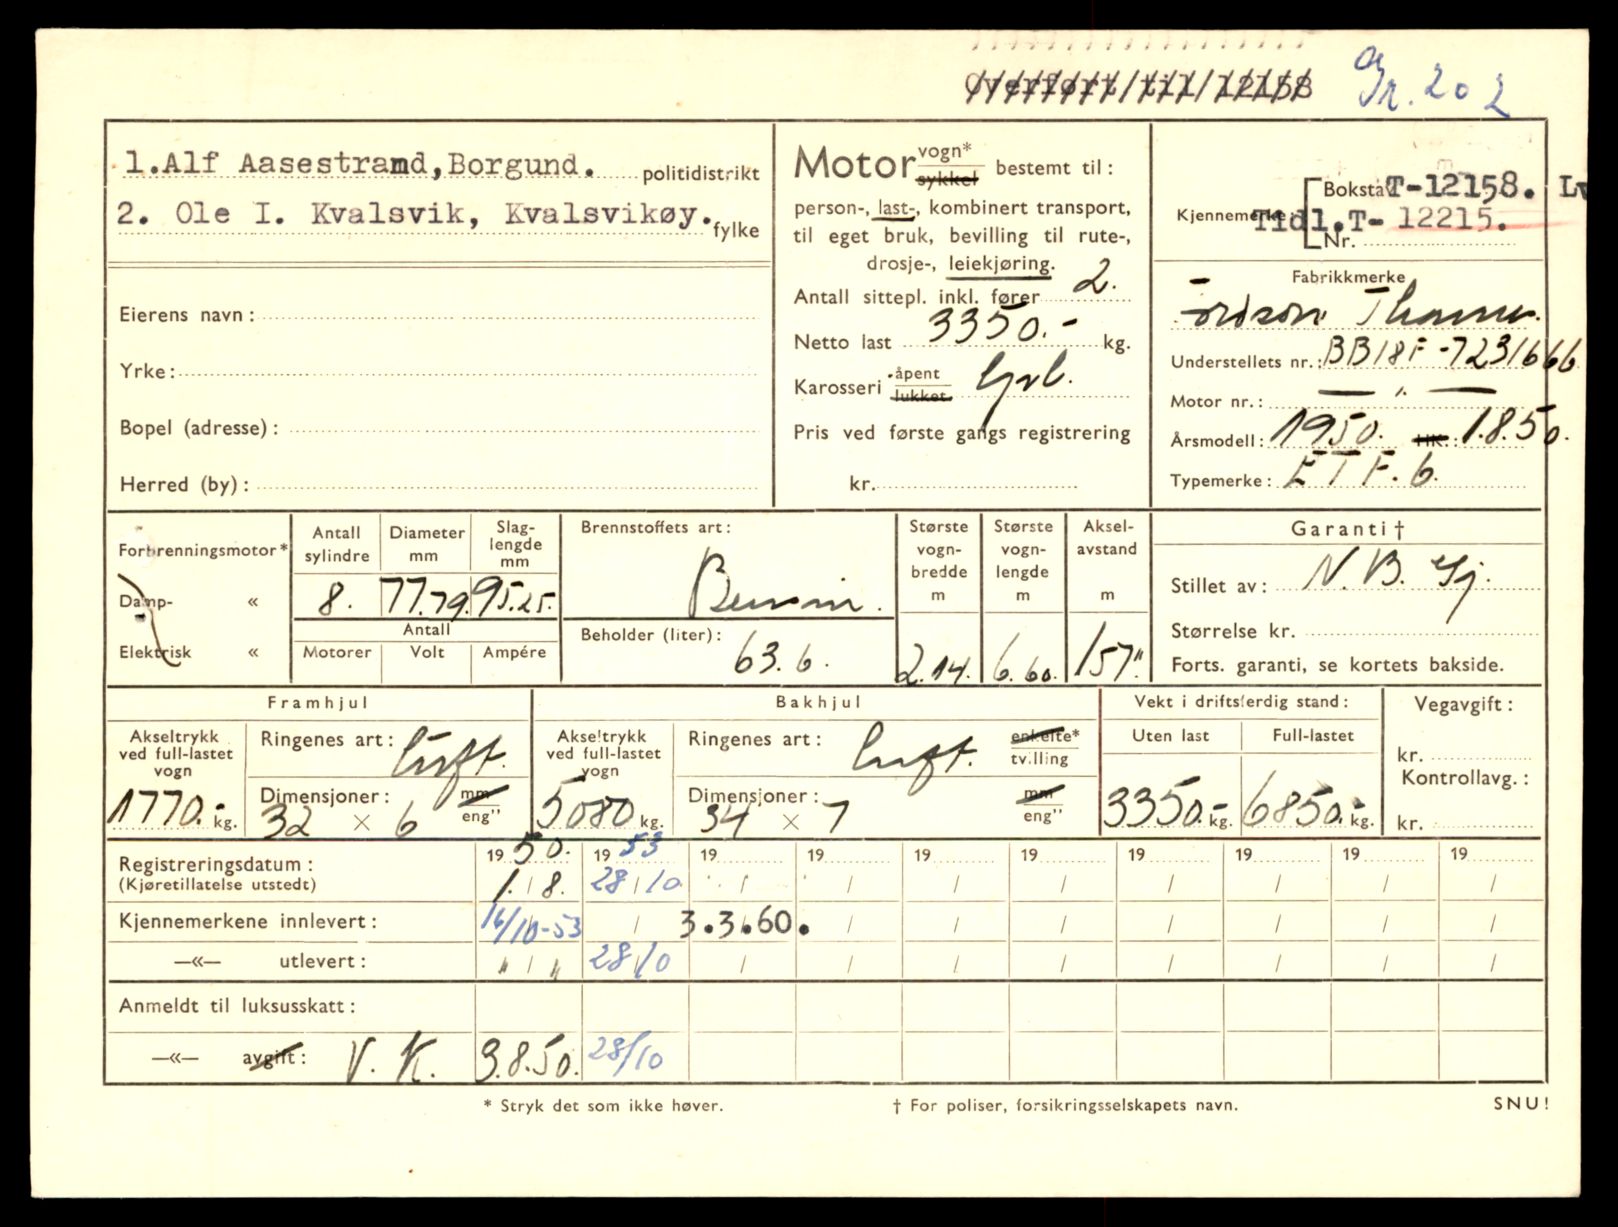 Overført til 12158 Gr. 202
1.Alf Aasestrand,Borgund. politidistrikt
2. Ole I. Kvalsvik, Kvalsvikøy. fylke
Eierens navn:
Yrke:
Bopel (adresse):
Herred (by):
Motor vogn* sykkel bestemt til:
person-, last-, kombinert transport,
til eget bruk, bevilling til rute-,
drosje-, leiekjøring.
Antall sittepl. inkl. fører 2.
Netto last 3350.- kg.
Karosseri åpent lukket
Pris ved første gangs registrering
kr.
Kjennemerke: Bokstav T-12158. Lv
Tidl.T- 12215.
Nr.
Fabrikkmerke
Fordson Thames.
Understellets nr.: BB18F-7231666
Motor nr.: — " —
Årsmodell: 1950. HK.: 1.8.50.
Typemerke: ETF.6.
Forbrenningsmotor*
Damp- «
Elektrisk «
Antall sylindre
8.
Diameter mm
77.79.
Slaglengde mm
95.25.
Antall
Motorer Volt Ampére
Brennstoffets art:
Bensin.
Beholder (liter):
63.6.
Største vogn-bredde m
2.14.
Største vogn-lengde m
6.60.
Aksel-avstand m
157".
Garanti †
Stillet av: N.B. Gj.
Størrelse kr.
Forts. garanti, se kortets bakside.
Framhjul
Akseltrykk ved full-lastet vogn
1770.- kg.
Ringenes art: luft.
Dimensjoner: mm eng"
32 × 6
Bakhjul
Akseltrykk ved full-lastet vogn
5080 kg.
Ringenes art: luft. enkelte* tvilling
Dimensjoner: mm eng"
34 × 7
Vekt i driftsferdig stand:
Uten last Full-lastet
3350.- kg. 6850.- kg.
Vegavgift:
kr.
Kontrollavg.:
kr.
Registreringsdatum: 19 50. 19 53 19 19 19 19 19 19 19 19
(Kjøretillatelse utstedt) 1./8. 28/10 / / / / / / / /
Kjennemerkene innlevert: 16/10-53 / 3.3.60. / / / / / / /
—«— utlevert: " / " 28/10 / / / / / / / /
Anmeldt til luksusskatt:
—«— avgift: V. K. 3.8.50. 28/10
* Stryk det som ikke høver. † For poliser, forsikringsselskapets navn. SNU!